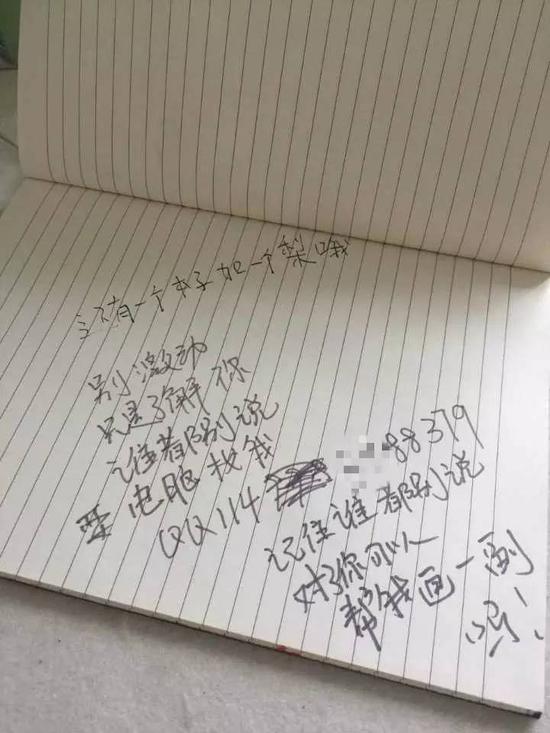 还有一个本子加一个梨哦
别激动
只是了解你
谁都别说
电脑找我
QQ114 88379
记住谁都别说
对了你可以
帮我画一副
吗!